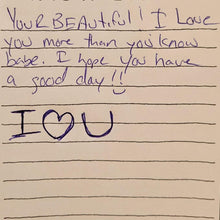 YOUR BEAUtiful! I Love
you more than you know
babe. I hope you have
a good day!!
I ♡ U